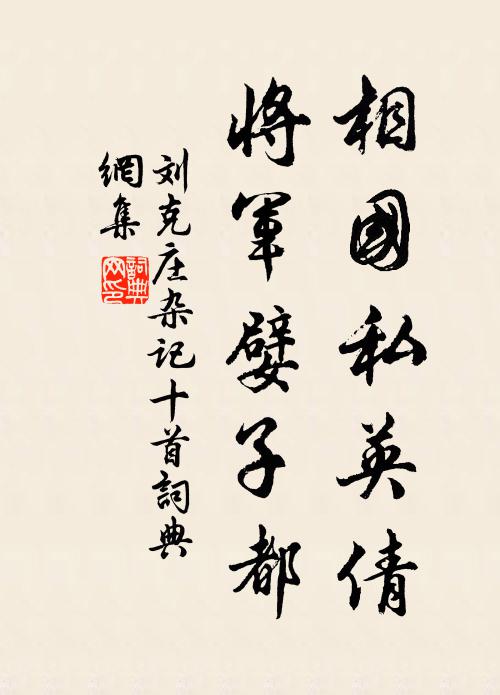 相國私英倩
將軍嬖子都
刘克庄杂记十首詞典
網集
詞典
网印